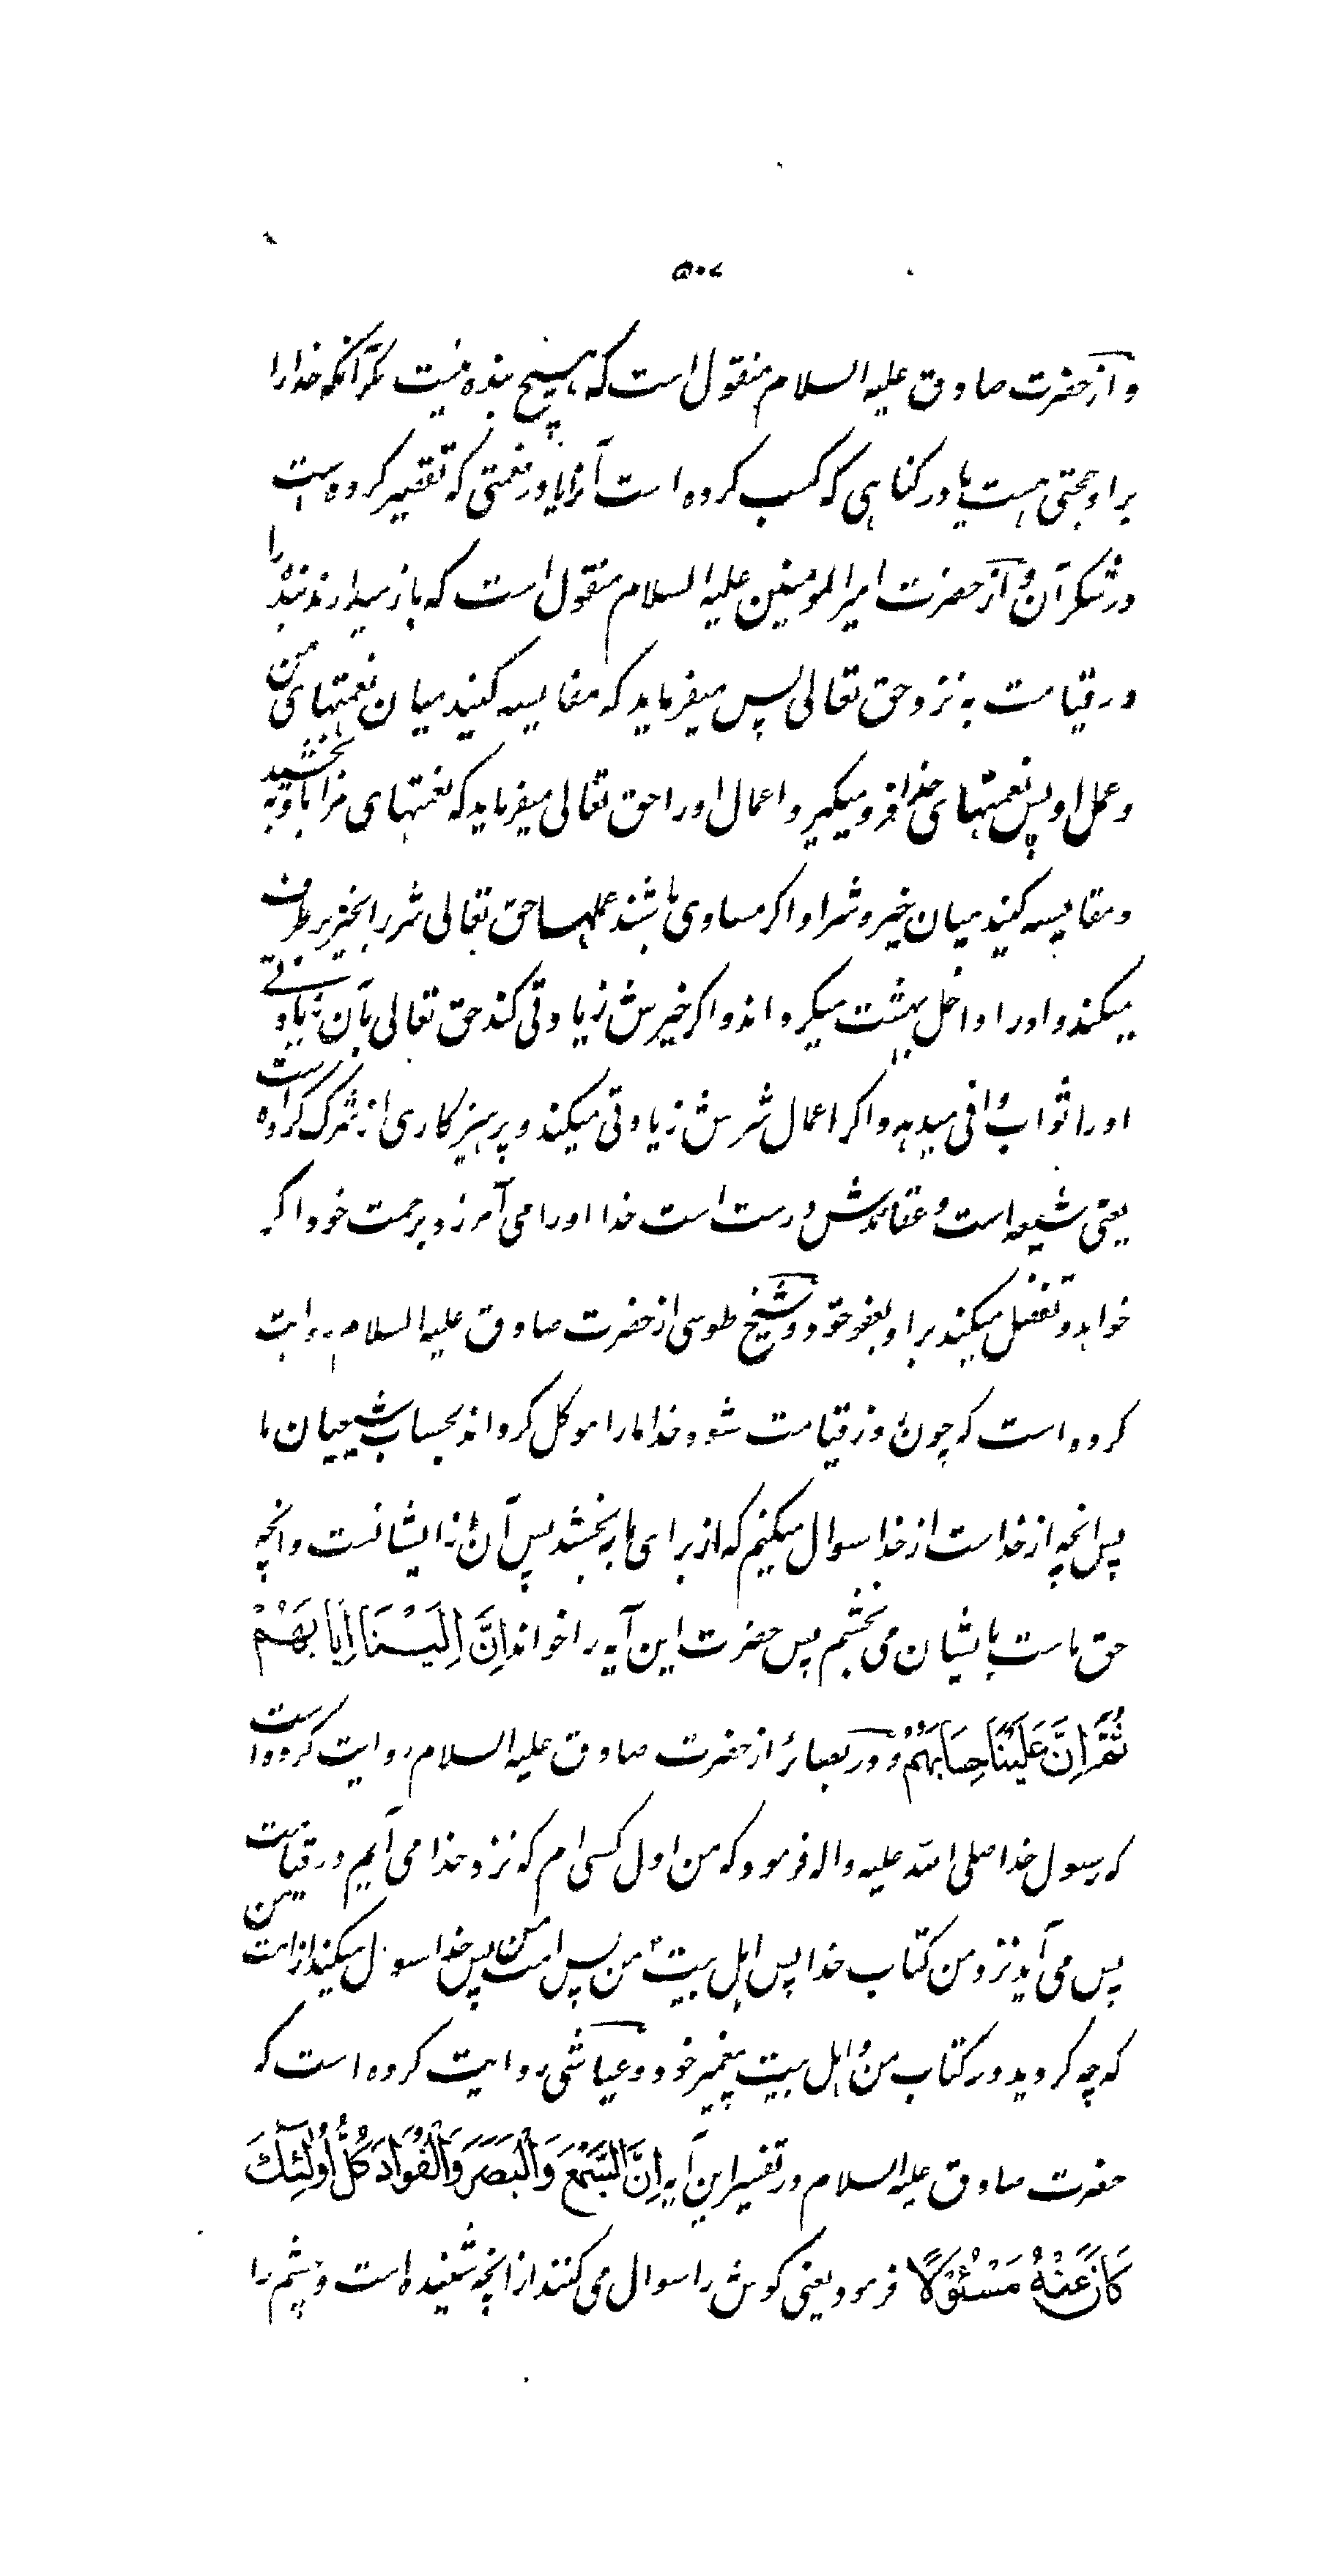 ۵۰۷
و از حضرت صادق علیه السلام منقول است که هیچ بنده نیست مگر آنکه خدا را
بر او حجتی هست یا در گناهی که کسب کرده است آنرا یا در نعمتی که تقصیر کرده است
در شکر آن و از حضرت امیر المومنین علیه السلام منقول است که باز میدارند بنده را
در قیامت به نزد حق تعالی پس میفرماید که مقایسه کنید میان نعمتهای من
و عمل او پس نعمتهای خدا فرو میگیرد اعمال او را حق تعالی میفرماید که نعمتهای مرا باو به بخشید
و مقایسه کنید میان خیر و شر او اگر مساوی باشند عملها حق تعالی شر را بخیر بر طرف
میکند و او را داخل بهشت میگرداند و اگر خیرش زیادتی کند حق تعالی بآن زیادتے
او را ثواب وافی میدهد و اگر اعمال شرش زیادتی میکند و پرهیزکاری از شرک کرده است
یعنی شیعه است و عقائدش درست است خدا او را می آمرزد برحمت خود اگر
خواهد و تفضل میکند بر او بعفو خود و شیخ طوسی از حضرت صادق علیه السلام روایت
کرده است که چون روز قیامت شود خدا ما را موکل گرداند بحساب شیعیان ما
پس انچه از خداست از خدا سوال میکنیم که از برای ما به بخشد پس آن از ایشانست و انچه
حق ماست بایشان می بخشیم پس حضرت این آیه را خواند اِنَّ اِلَیْنَا اِیَابَهُمْ
ثُمَّ اِنَّ عَلَیْنَا حِسَابَهُمْ و در بصائر از حضرت صادق علیه السلام روایت کرده است
که رسول خدا صلی الله علیه و اله فرمود که من اول کسی ام که نزد خدا می آیم در قیامت
پس می آید نزد من کتاب خدا پس اهل بیت من پس امت من پس خدا سوال میکند از امت من
که چه کردید در کتاب من و اهل بیت پیغمبر خود و عیاشی روایت کرده است که
حضرت صادق علیه السلام در تفسیر این آیه اِنَّ السَّمْعَ وَالْبَصَرَ وَالْفُوَادَ کُلُّ اُولٰئِكَ
کَانَ عَنْهُ مَسْئُوْلًا فرمود یعنی گوش را سوال می کنند از انچه شنیده است و چشم را